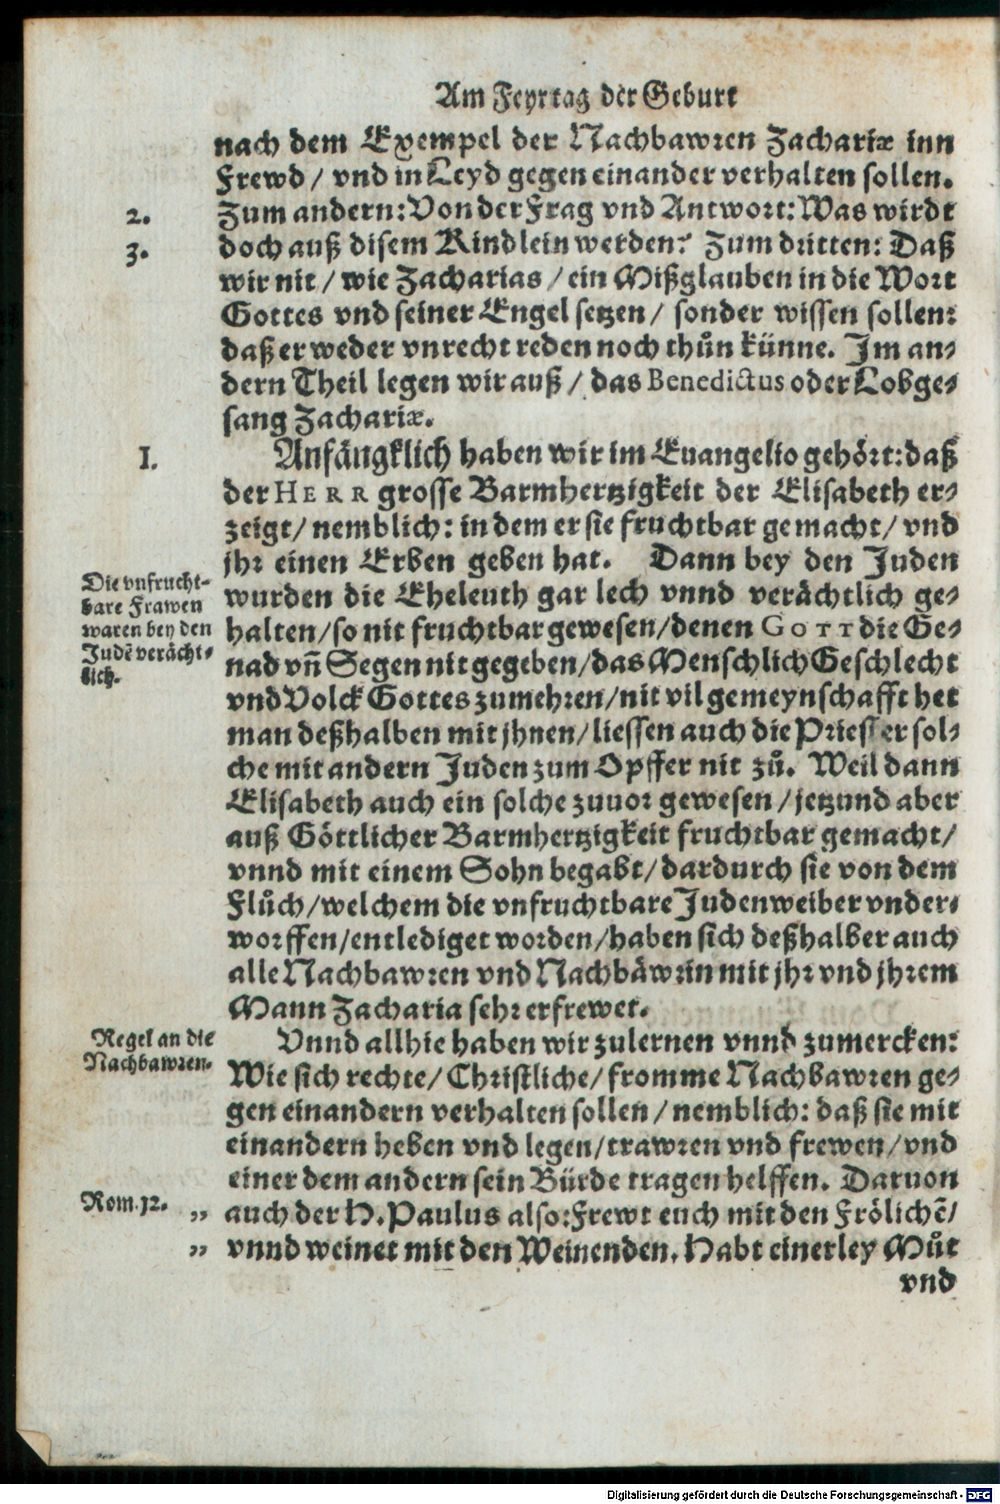 Am Feyrtag der Geburt
nach dem Exempel der Nachbawren Zachariæ inn
Frewd / vnd in Leyd gegen einander verhalten sollen.
2. Zum andern: Von der Frag vnd Antwort: Was wirdt
3. doch auß disem Kindlein werden? Zum dritten: Daß
wir nit / wie Zacharias / ein Mißglauben in die Wort
Gottes vnd seiner Engel setzen / sonder wissen sollen:
daß er weder vnrecht reden noch thůn künne. Im an⸗
dern Theil legen wir auß / das Benedictus oder Lobge⸗
sang Zachariæ.
1. Anfängklich haben wir im Euangelio gehört: daß
der HERR grosse Barmhertzigkeit der Elisabeth er⸗
zeigt / nemblich: in dem er sie fruchtbar gemacht / vnd
jhr einen Erben geben hat. Dann bey den Juden
Die vnfrucht⸗
bare Frawen
waren bey den
Judē verächt⸗
lich.
wurden die Eheleuth gar lech vnnd verächtlich ge⸗
halten / so nit fruchtbar gewesen / denen GOTT die Ge⸗
nad vñ Segen nit gegeben / das Menschlich Geschlecht
vnd Volck Gottes zumehren / nit vil gemeynschafft het
man deßhalben mit jhnen / liessen auch die Priester sol⸗
che mit andern Juden zum Opffer nit zů. Weil dann
Elisabeth auch ein solche zuuor gewesen / jetzund aber
auß Göttlicher Barmhertzigkeit fruchtbar gemacht /
vnnd mit einem Sohn begabt / dardurch sie von dem
Flůch / welchem die vnfruchtbare Judenweiber vnder⸗
worffen / entlediget worden / haben sich deßhalber auch
alle Nachbawren vnd Nachbäwrin mit jhr vnd jhrem
Mann Zacharia sehr erfrewet.
Regel an die
Nachbawren.
Vnnd allhie haben wir zulernen vnnd zumercken:
Wie sich rechte / Christliche / fromme Nachbawren ge⸗
gen einandern verhalten sollen / nemblich: daß sie mit
einandern heben vnd legen / trawren vnd frewen / vnd
einer dem andern sein Bürde tragen helffen. Daruon
Rom. 12. „ auch der H. Paulus also: Frewt euch mit den Frölichē /
„ vnnd weinet mit den Weinenden. Habt einerley Můt
vnd
Digitalisierung gefördert durch die Deutsche Forschungsgemeinschaft - DFG